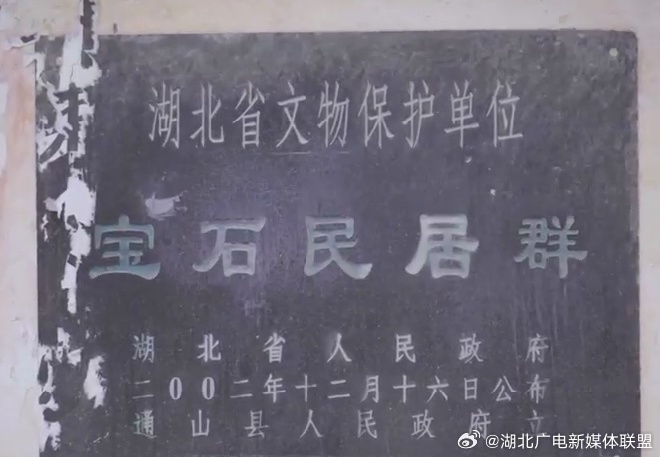 湖北省文物保护单位
宝石民居群
湖北省人民政府
二00二年十二月十六日公布
通山县人民政府立
@湖北广电新媒体联盟